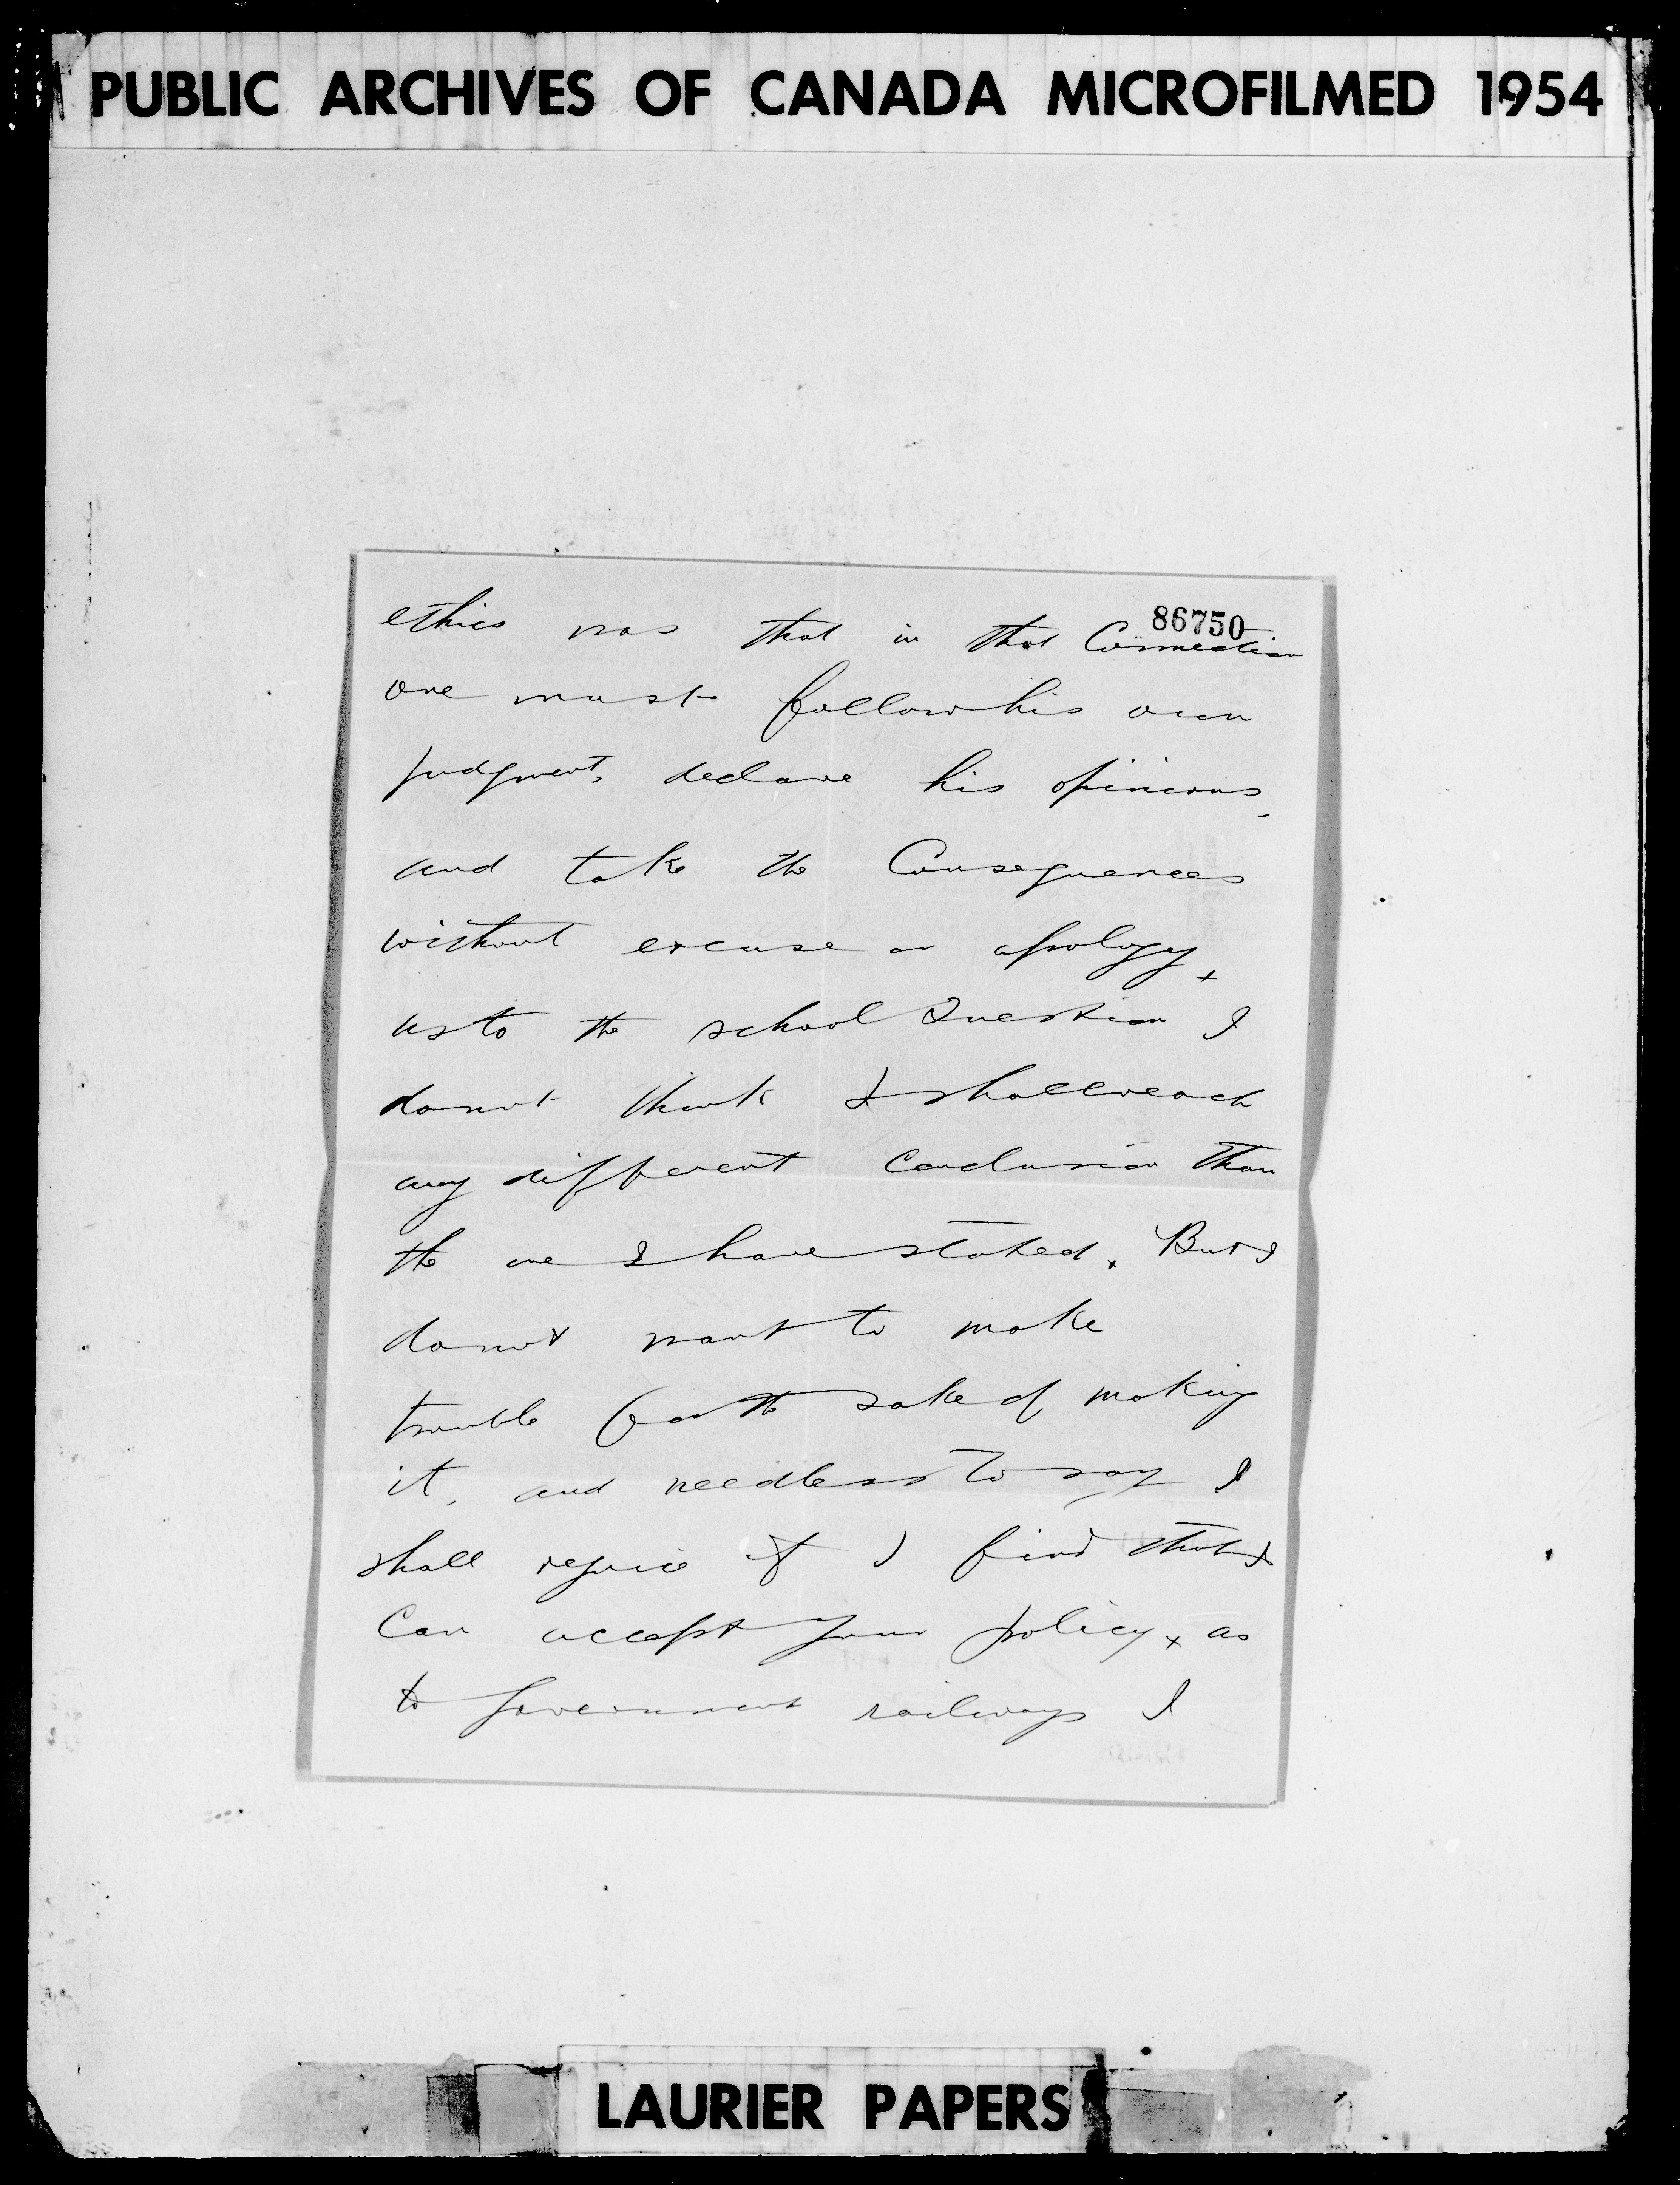 PUBLIC ARCHIVES OF CANADA MICROFILMED 1954
86750
ethics was that in that Connection
one must follow his own
judgment, declare his opinions,
and take the Consequences
without excuse or apology x
as to the school Question I
do not think I shall reach
any different Conclusion than
the one I have stated x But I
do not want to make
trouble for the sake of making
it, and needless to say I
shall rejoice if I find that I
Can accept your policy x as
to Government railways I
LAURIER PAPERS